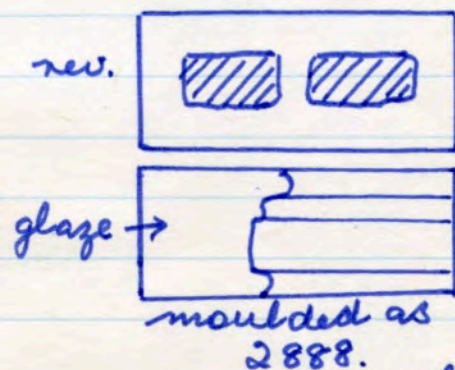 rev.
glaze →
moulded as
2888.